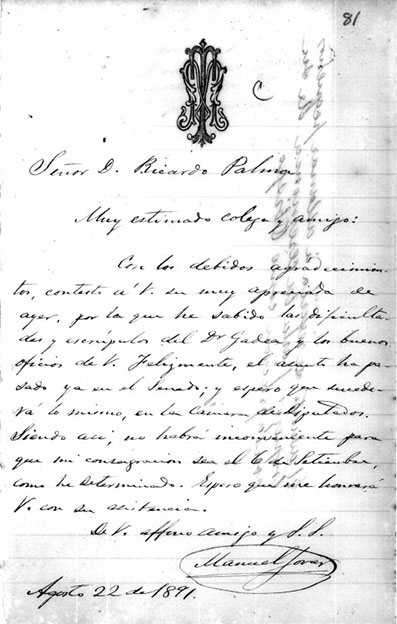 81
C
Señor D. Ricardo Palma
Muy estimado colega y amigo:
Con los debidos agradecimien-
tos, contesto á V. su muy apreciada de
ayer, por la que he sabido las dificulta-
des y escrúpulos del Dr Gadea y los buenos
oficios de V. Felizmente, el asunto ha pa-
sado ya en el Senado; y espero que sucede-
rá lo mismo, en la Cámara de Diputados.
Siendo así, no habrá inconveniente para
que mi consagracion sea el 6 de Setiembre,
como he determinado. Espero que me honrará
V. con su asistencia.
De V. affmo amigo y S. S.
Manuel Tovar
Agosto 22 de 1891.